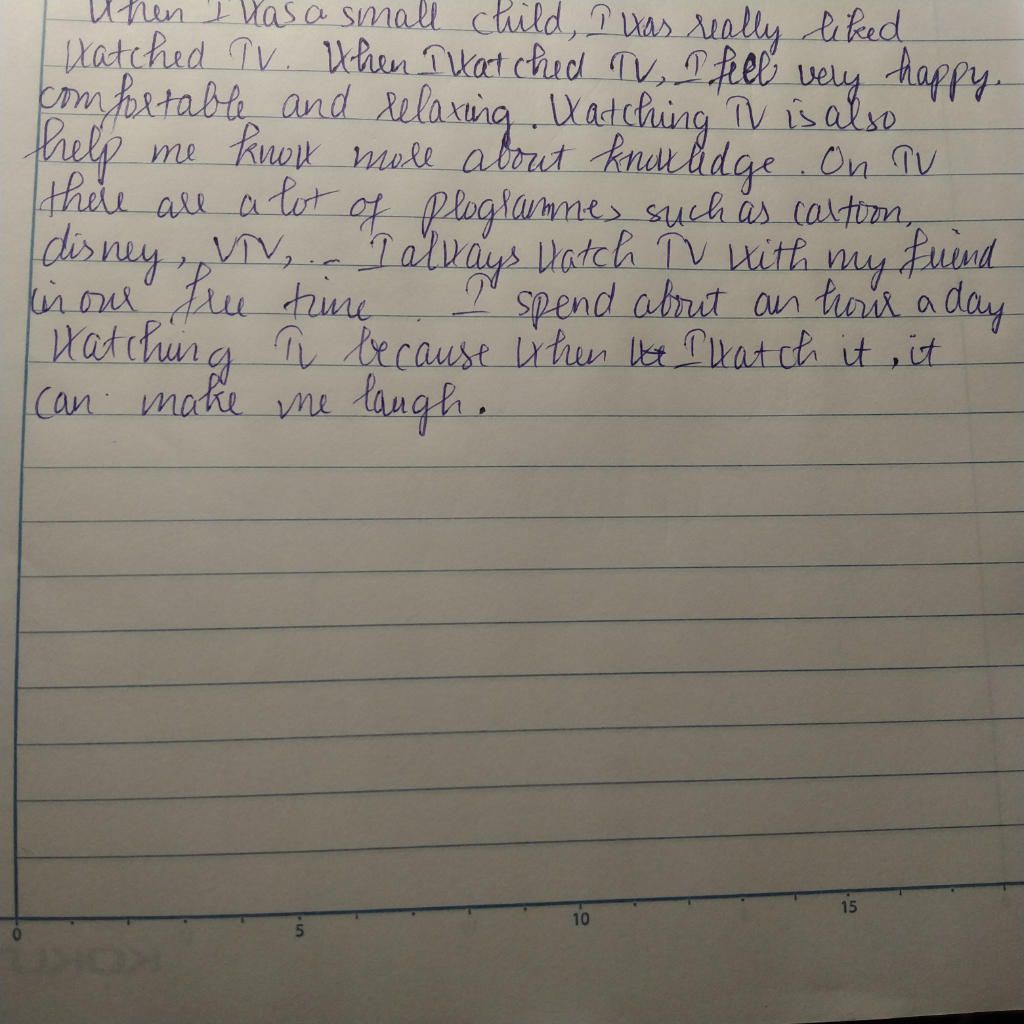 When I was a small child, I was really liked
watched TV. When I watched TV, I feel very happy.
comfortable and relaxing. Watching TV is also
help me know more about knowledge. On TV
there are a lot of programmes such as cartoon,
disney, VTV, .. I always watch TV with my friend
in our free time. I spend about an hour a day
watching TV because when I watch it, it
can make me laugh.
0 5 10 15